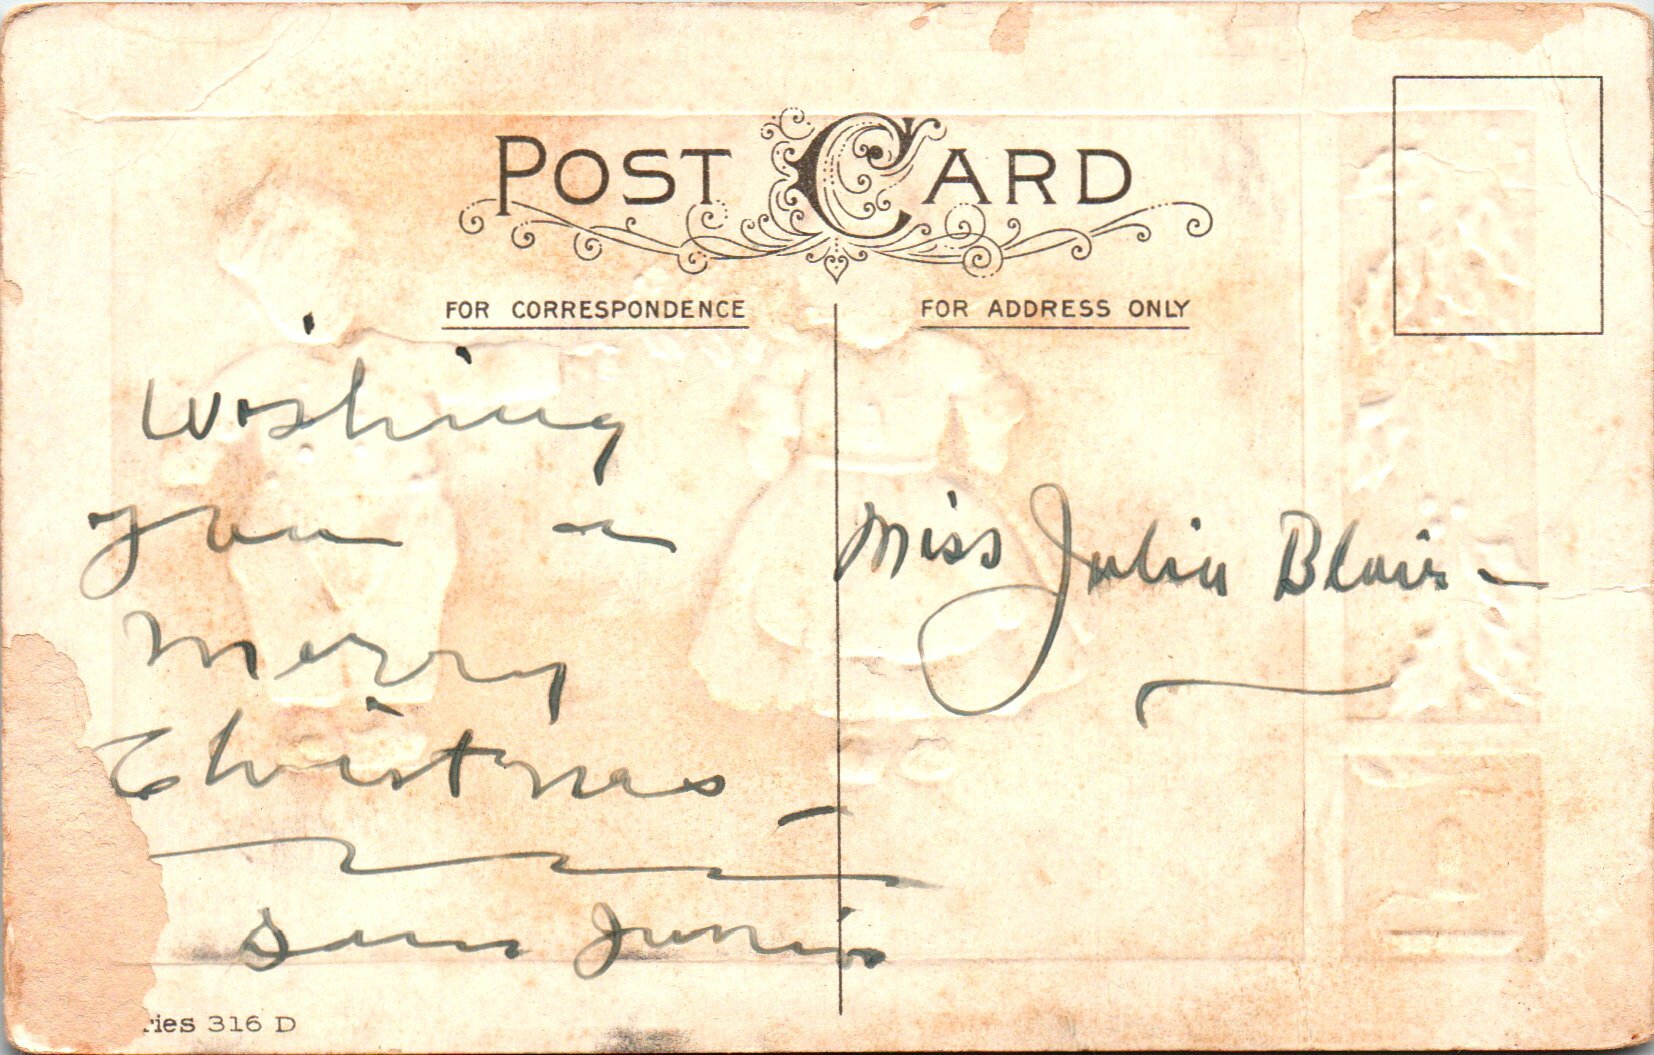 POST CARD
FOR CORRESPONDENCE
FOR ADDRESS ONLY
Wishing
you a
Merry
Christmas –
Sam Junior
Miss Julia Blair –
ries 316 D